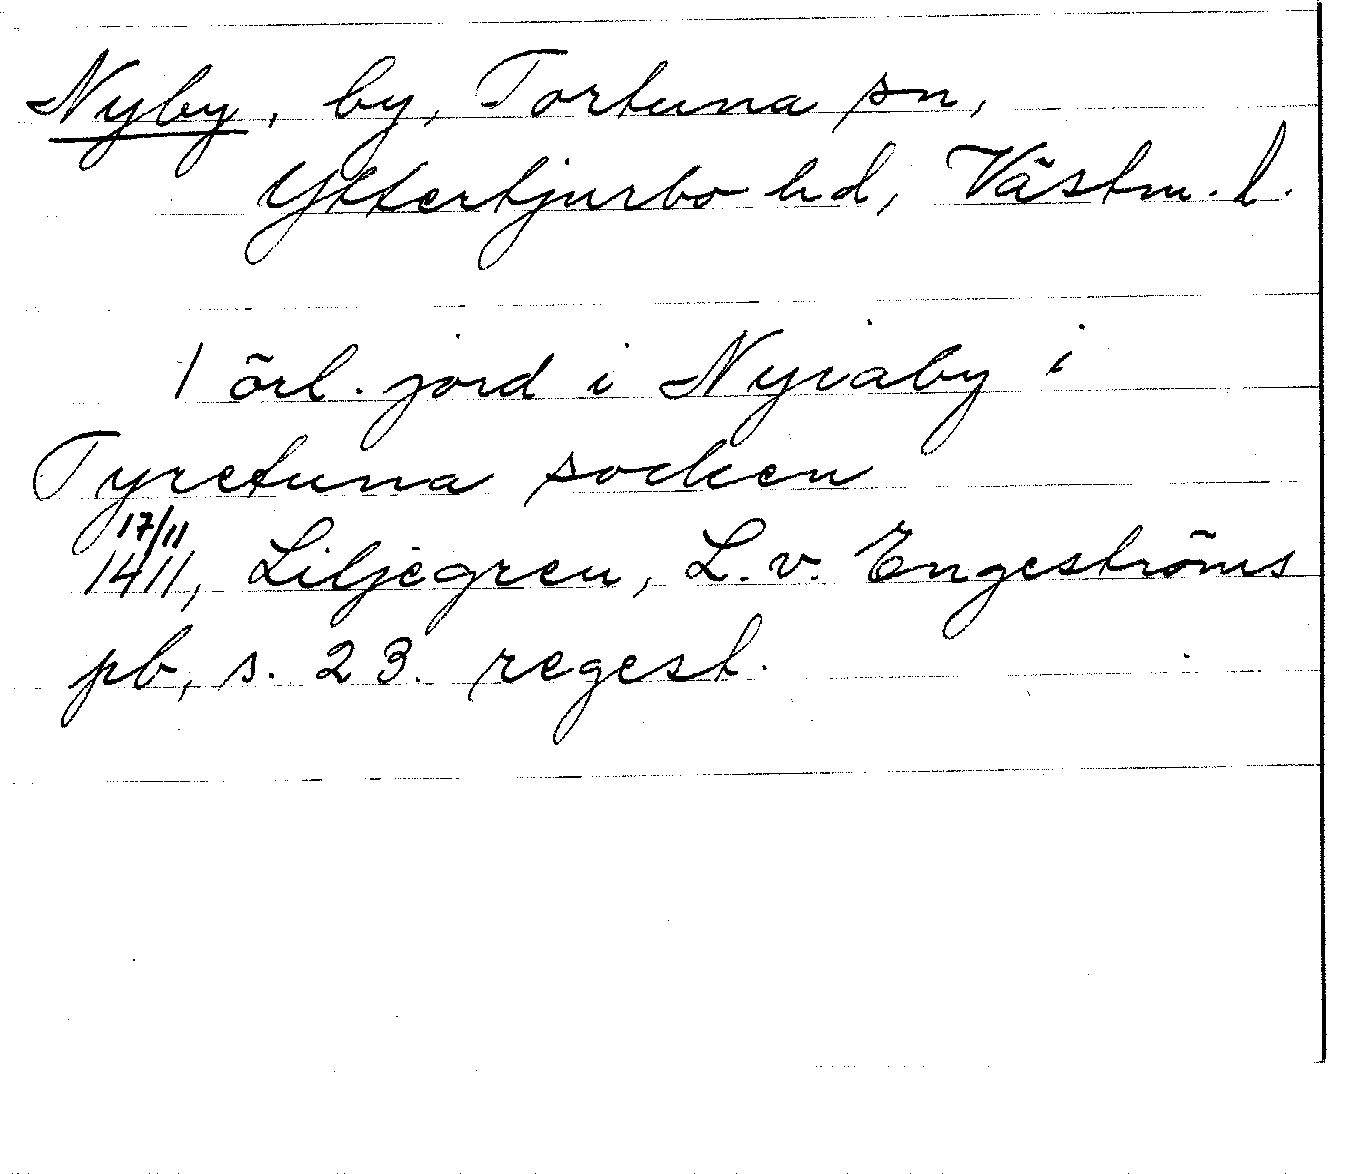 Nyby, by, Tortuna sn,
Yttertjurbo hd, Västm. l.
1 örl. jord i Nyiaby i
Tyretuna socken
17/11
1411, Liljegren, L. v. Engeströms
pb, s. 23. regest.